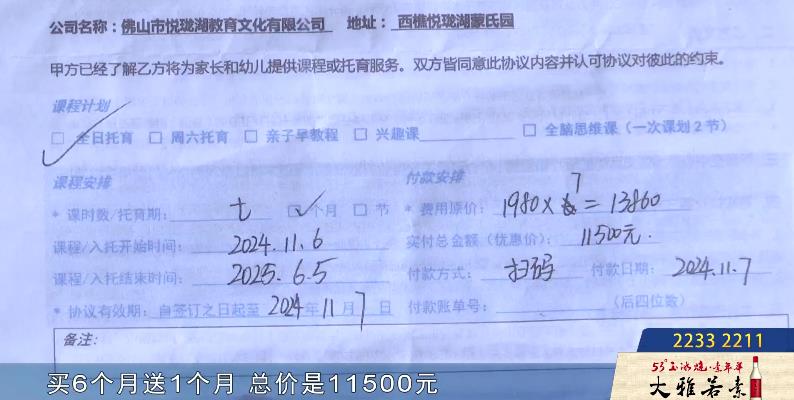 公司名称：佛山市悦珑湖教育文化有限公司 地址：西樵悦珑湖蒙氏园
甲方已经了解乙方将为家长和幼儿提供课程或托育服务。双方皆同意此协议内容并认可协议对彼此的约束。
课程计划
□ 全日托育 □ 周六托育 □ 亲子早教程 □ 兴趣课 □ 全脑思维课（一次课划2节）
课程安排 付款安排
* 课时数/托育期：七 ☑个月 □ 节 * 费用原价：1980×7=13860
课程/入托开始时间：2024.11.6 实付总金额（优惠价）：11500元.
课程/入托结束时间：2025.6.5 付款方式：扫码 付款日期：2024.11.7
* 协议有效期：自签订之日起至2024年11月7日 付款账单号：（后四位数）
备注：
2233 2211
53°玉冰烧·素年华
大雅若素
买6个月送1个月 总价是11500元